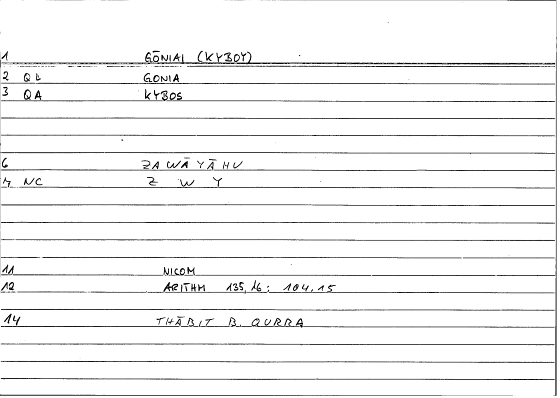 1 GŌNIAI (KYBOY)
2 QL GONIA
3 QA KYBOS
6 ZAWĀYĀHU
7 NC Z W Y
11 NICOM
12 ARITHM 135,16; 104,15
14 THĀBIT B. QURRA